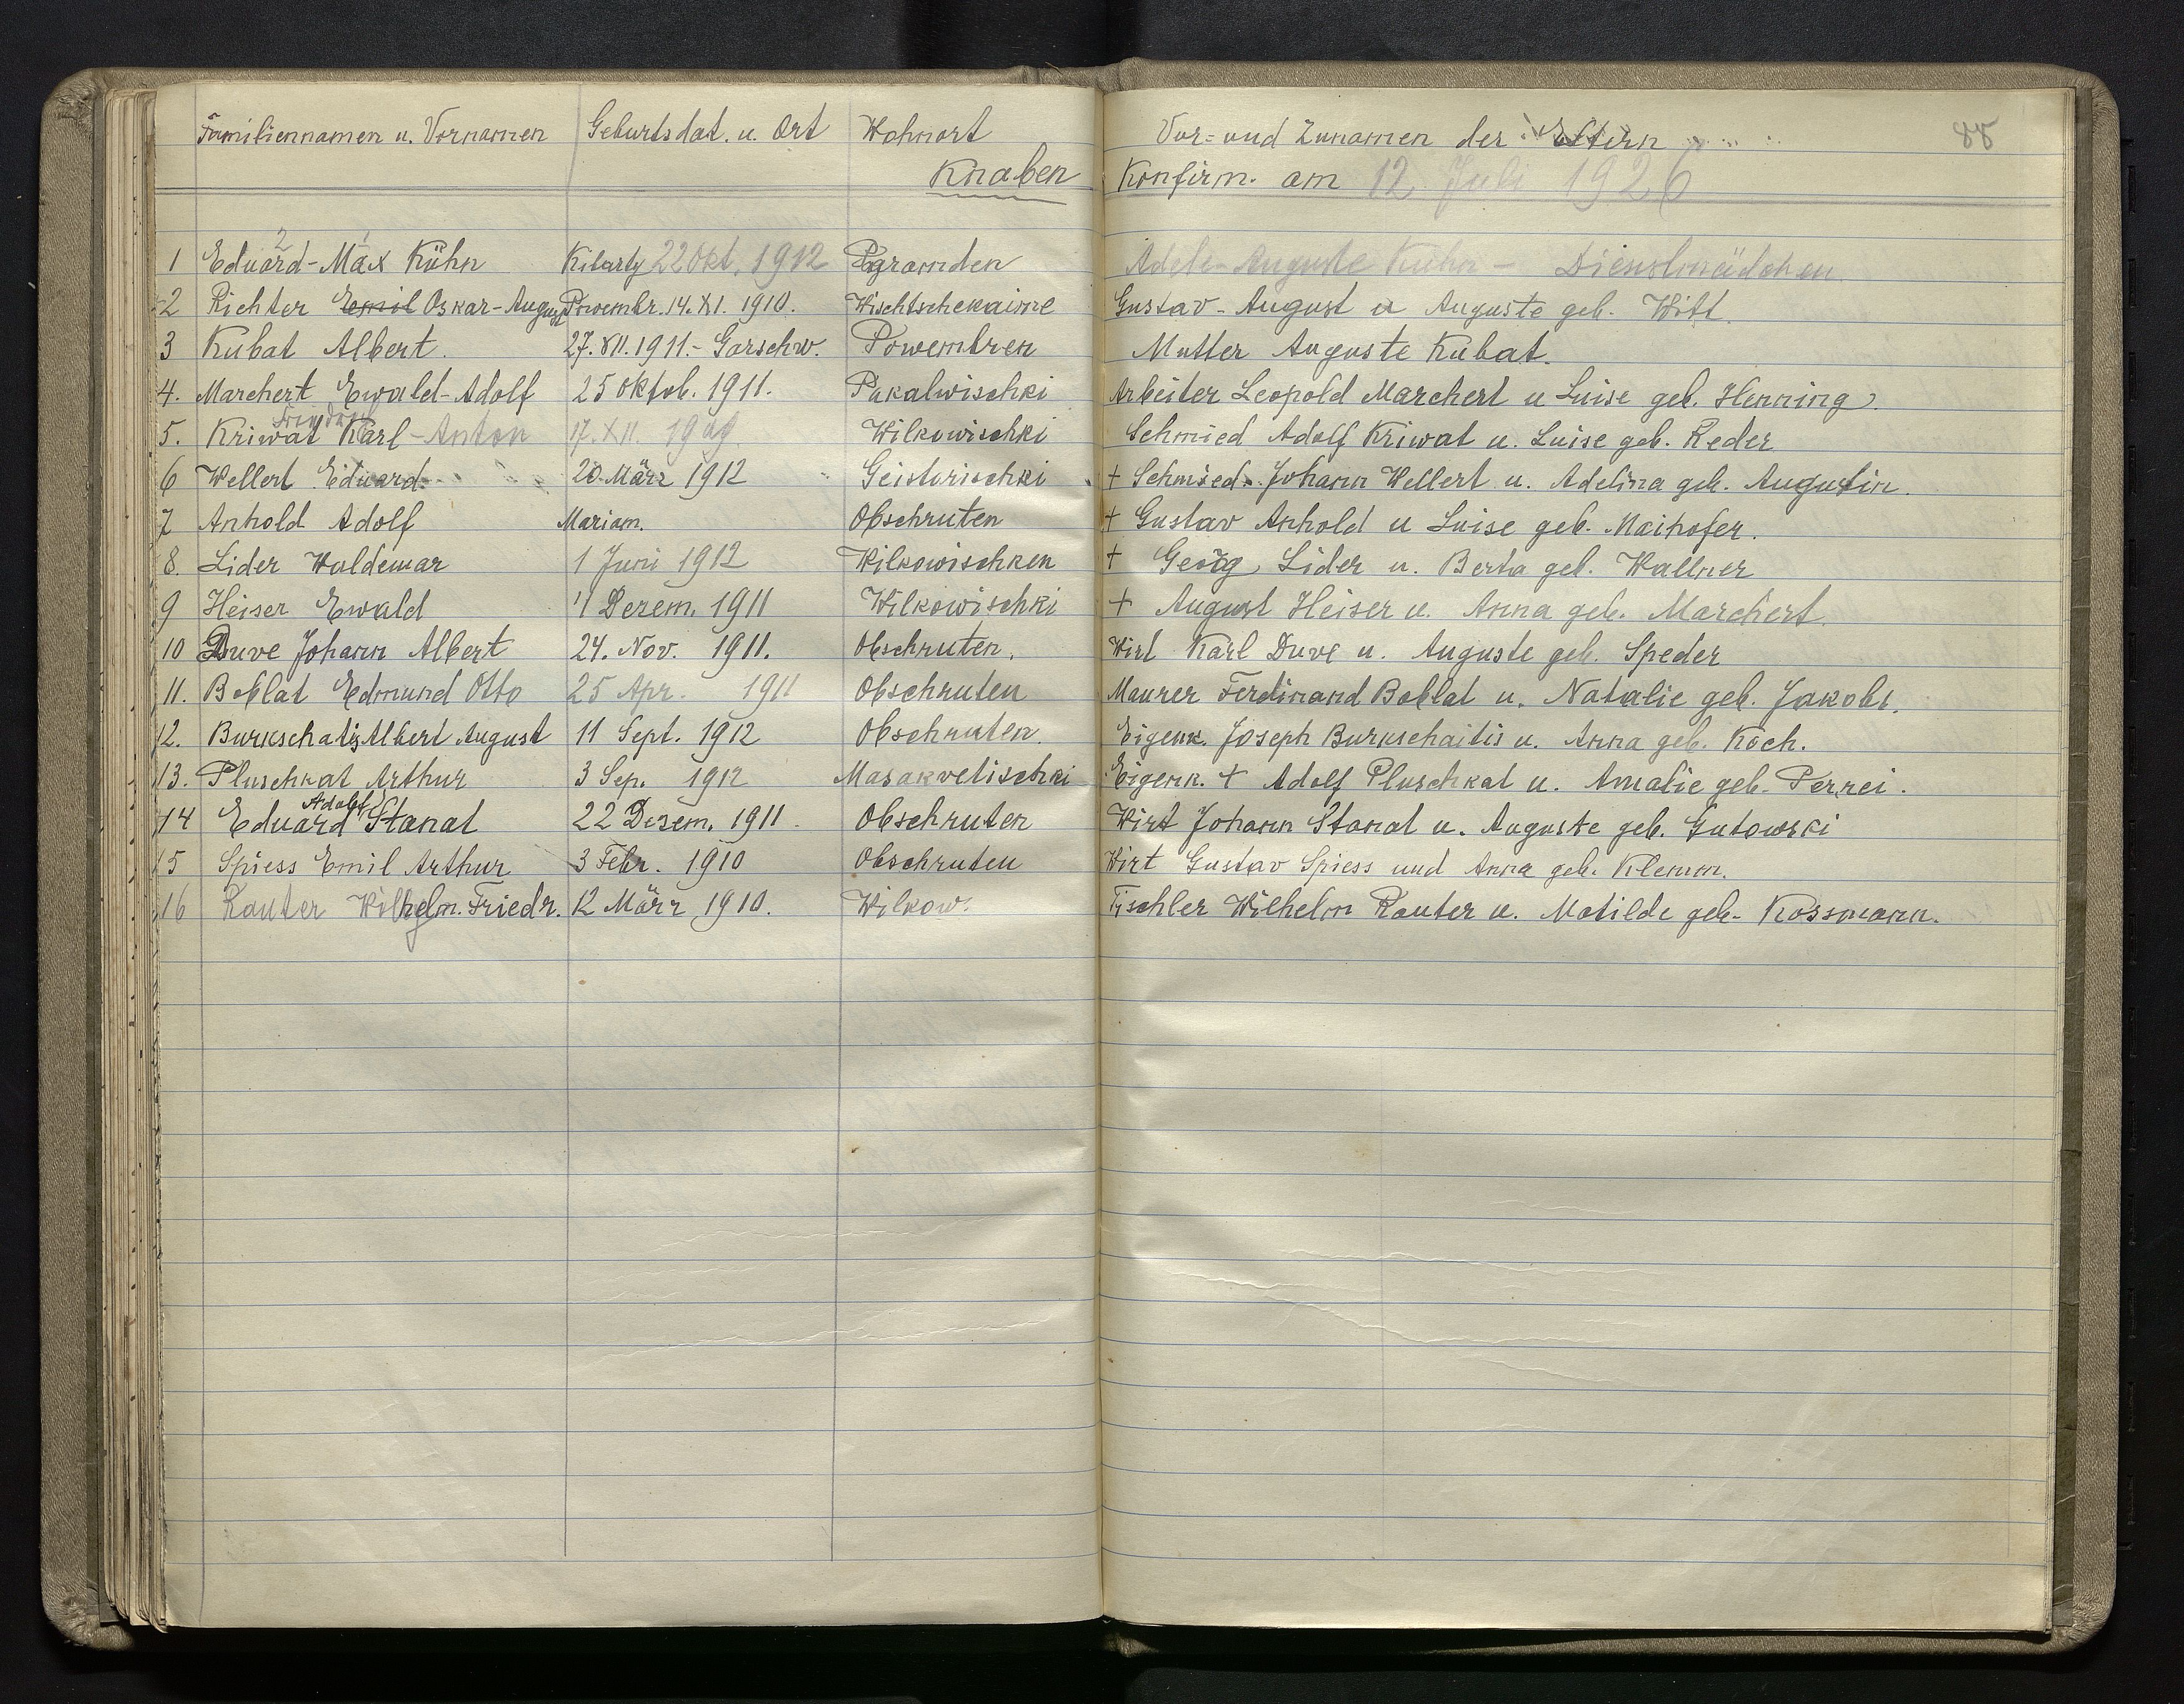 Familiennamen u. Vornamen Geburtsdat. u. Ort Wohnort Vor- und Zunamen der Eltern 88
Knaben Konfirm. am 12. Juli 1926
2 1
1 Eduard-Max Kühn Kibarty 22 Okt. 1912 Pogramden Adele-Auguste Kühn - Dienstmädchen
2 Richter Emil Oskar-August Powembr. 14. XI. 1910. Wischtschekaime Gustav-August u Auguste geb. Witt.
3 Kubat Albert. 27. XII. 1911. - Garschw. Powembren Mutter Auguste Kubat.
4. Marchert Ewald-Adolf 25 Oktob. 1911. Pukalwischki Arbeiter Leopold Marchert u Luise geb. Henning.
5. Kriwat Karl-Anton 17. XII. Wilkowischki Schmied Adolf Kriwat u. Luise geb. Reder
6 Wellert Eduard 20. März 1912 Geisterischki + Schmied Johann Wellert u. Adelina geb. Augustin.
7 Anhold Adolf Mariam. Obschruten + Gustav Anhold u Luise geb. Maihofer.
8. Lider Waldemar 1 Juni 1912 Wilkowischken + Georg Lider u. Berta geb. Wallner
9 Heiser Ewald Dezem. 1911 Wilkowischki + August Heiser u. Anna geb. Marchert.
10 Duve Johann Albert 24. Nov. 1911. Obschruten. Wirt Karl Duve u. Auguste geb. Speder
11. Boblat Edmund Otto 25 Apr. 1911 Obschruten Maurer Ferdinand Boblat u. Natalie geb. Jakobi.
12. Burkschatis Albert August 11 Sept. 1912 Obschruten. Eigenk. Joseph Burkschaitis u. Anna geb. Koch.
13. Pluschkat Arthur 3 Sep. 1912 Masakvetischki Eigenk. + Adolf Pluschkat u. Amalie geb. Perrei.
Adolf
14 Eduard Stanat 22 Dezem. 1911. Obschruten Wirt Johann Stanat u. Auguste geb. Gutowski
15 Spiess Emil Arthur 3 Febr. 1910 Obschruten Wirt Gustav Spiess und Anna geb. Klemm.
16 Rauter Wilhelm. Friedr. 12 März 1910. Wilkow. Tischler Wilhelm Rauter u. Matilde geb. Kossmann.